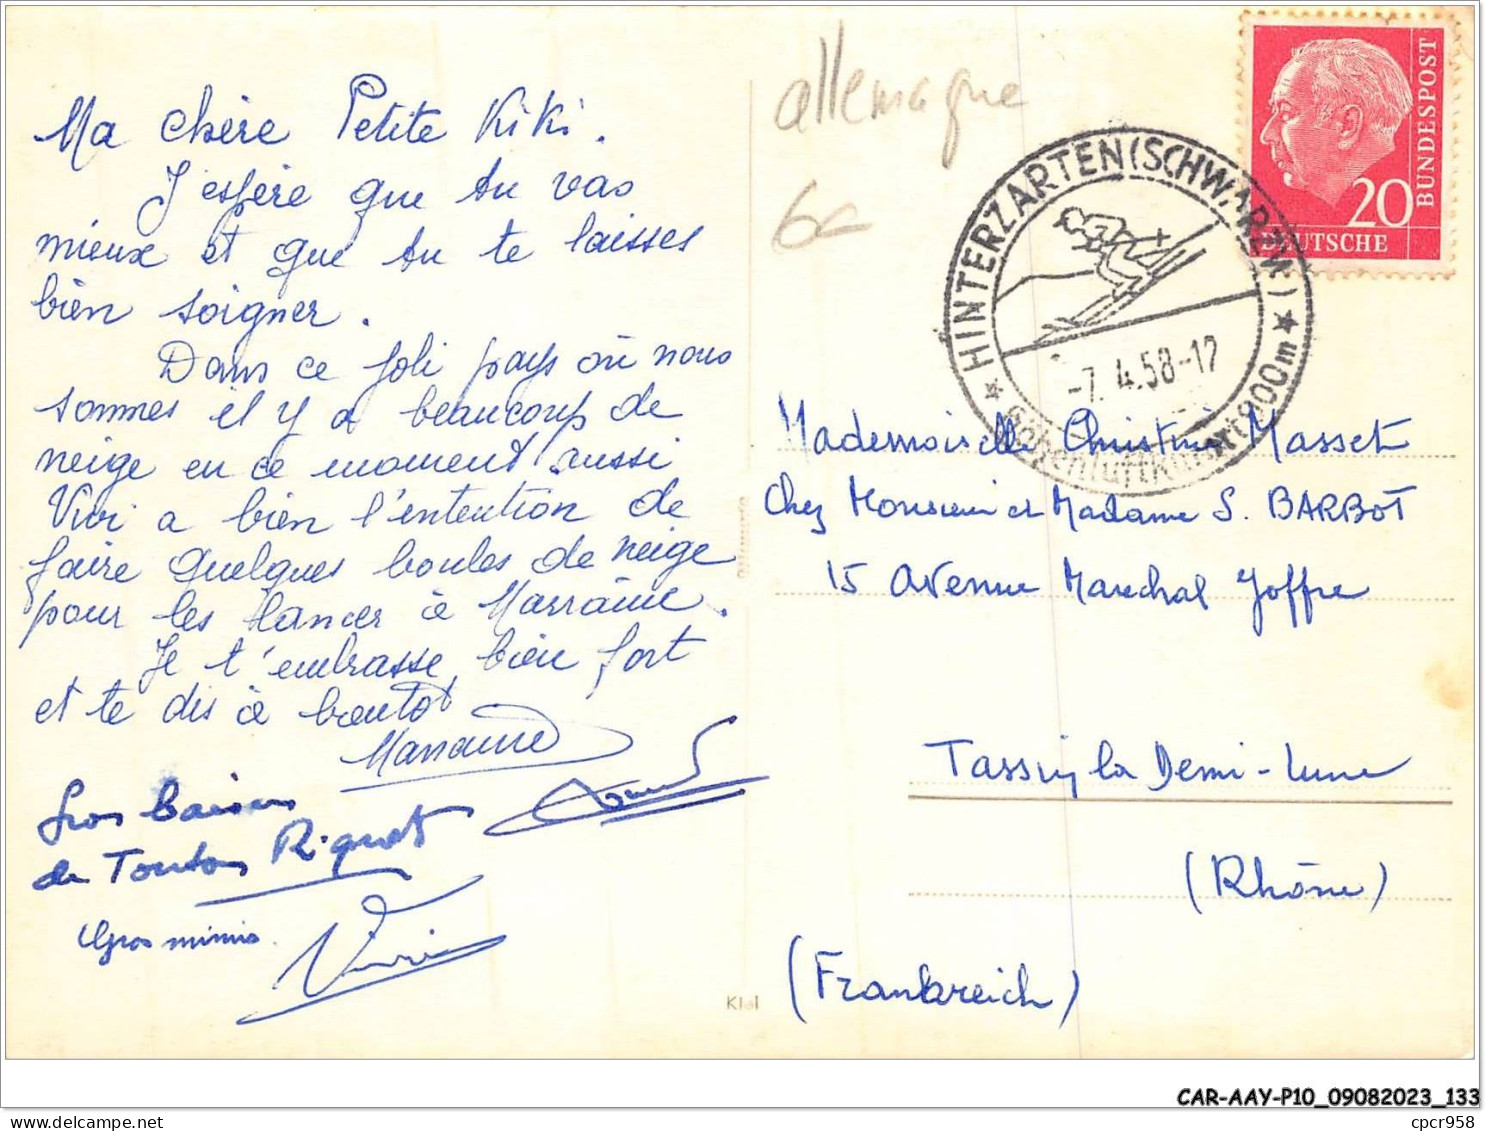 Ma chère Petite Kiki.
J'espère que tu vas
mieux et que tu te laisses
bien soigner.
Dans ce joli pays où nous
sommes il y a beaucoup de
neige en ce moment aussi
Vivi a bien l'intention de
faire quelques boules de neige
pour les lancer à Marraine.
Je t'embrasse bien fort
et te dis à bientôt
Marraine
Gros baisers
de Tonton Riquet
Gros mimis.
Vivi
allemagne
6€
BUNDESPOST
20
DEUTSCHE
HINTERZARTEN (SCHWARZW.)
-7.4.58-12
Höhenluftkurort 900m
Mademoiselle Christine Masset
Chez Monsieur et Madame S. BARBOT
15 Avenue Marechal Joffre
Tassin la Demi-Lune
(Rhône)
(Frankreich)
CAR-AAY-P10_09082023_133
cpcr958